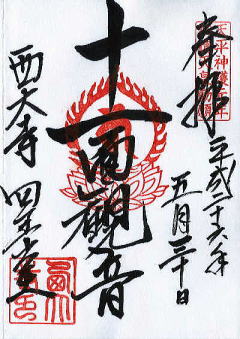 奉拝
平成二十六年
五月三十日
十一面観音
西大寺 四王堂